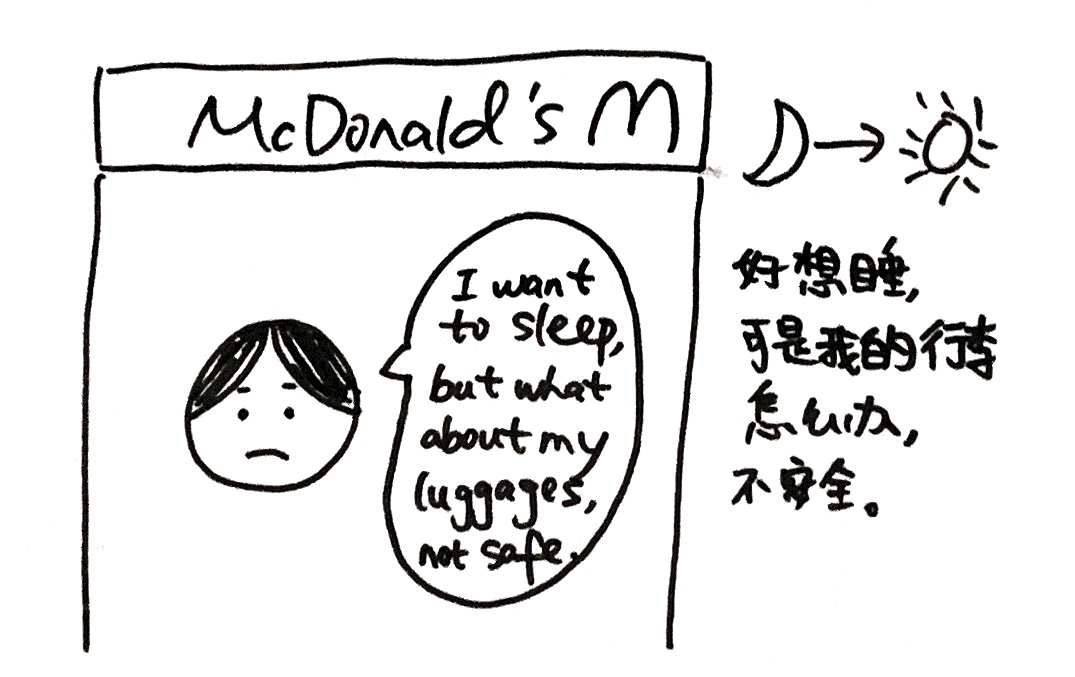 McDonald's M
I want
to sleep,
but what
about my
luggages,
not safe.
好想睡,
可是我的行李
怎么办,
不安全。